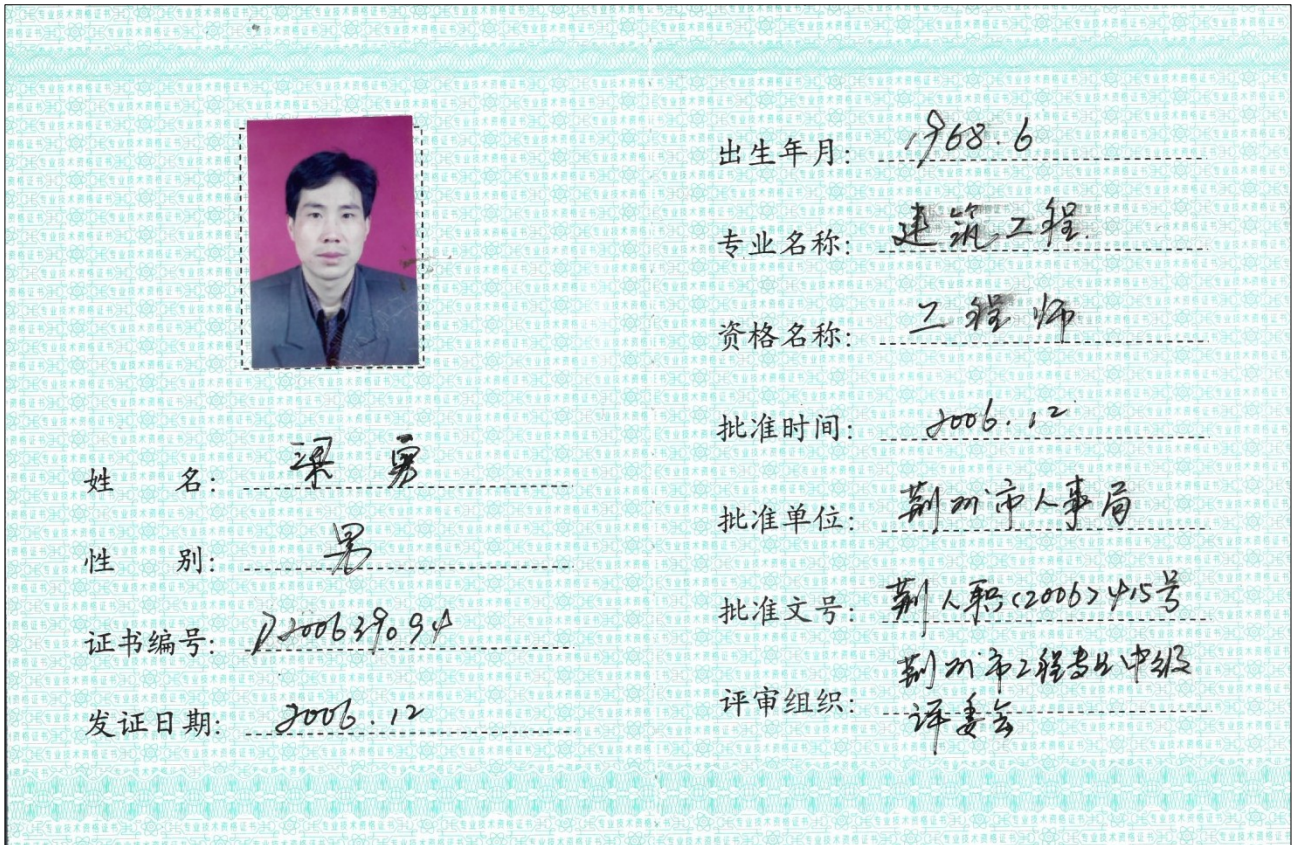 姓 名: 梁勇
性 别: 男
证书编号: D200639094
发证日期: 2006.12
出生年月: 1968.6
专业名称: 建筑工程
资格名称: 工程师
批准时间: 2006.12
批准单位: 荆州市人事局
批准文号: 荆人职(2006)415号
评审组织: 荆州市工程专业中级
评委会